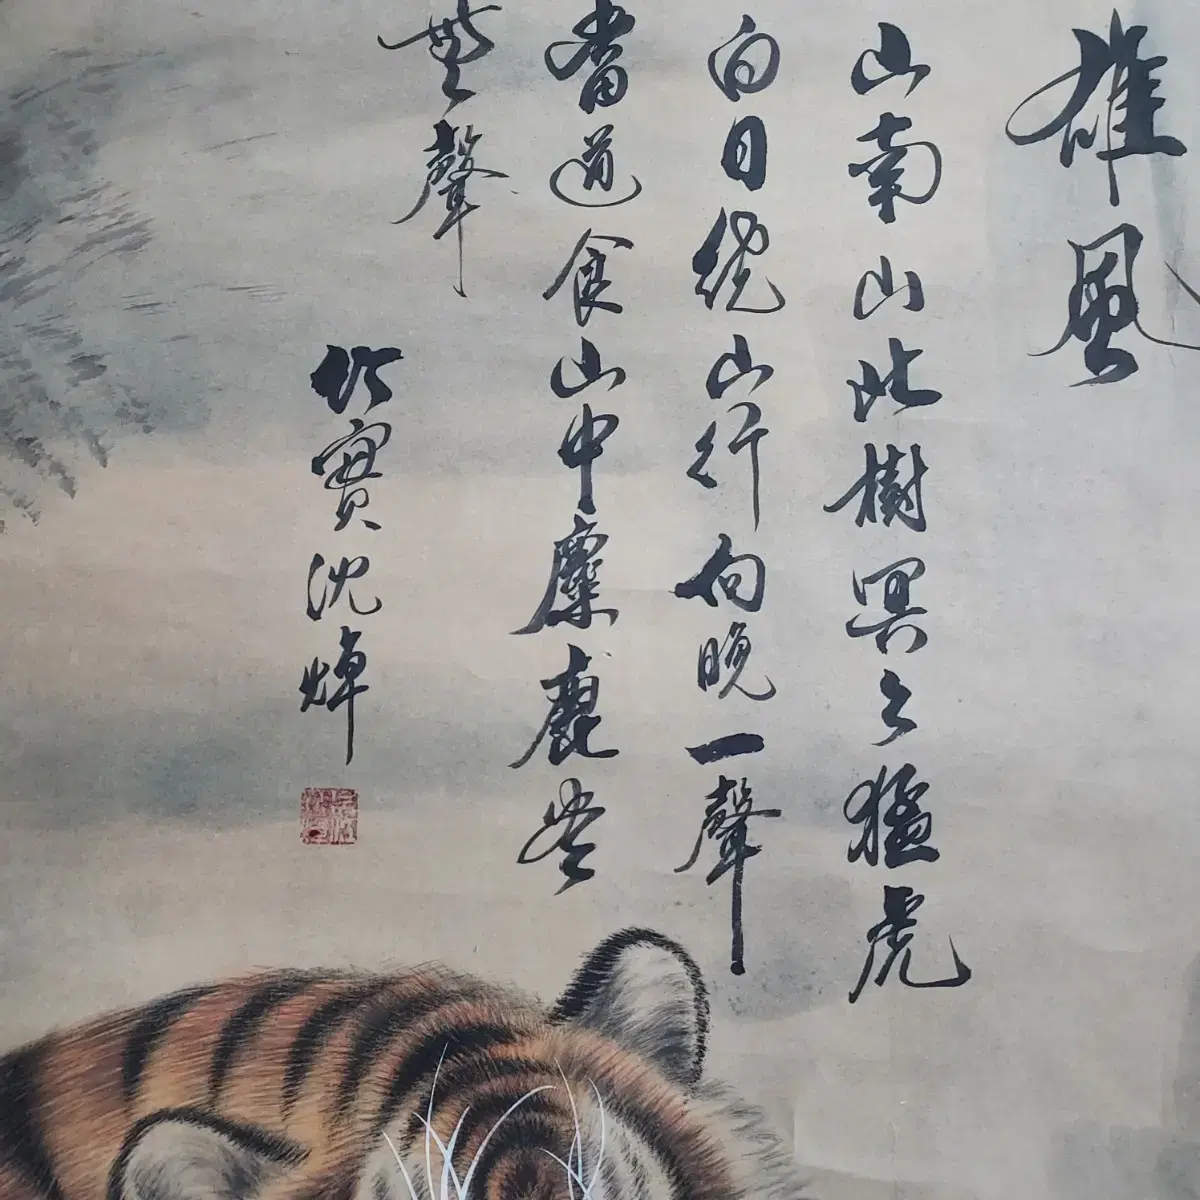 雄風
山南山北樹冥〻猛虎
白日繞山行向晚一聲
當道食山中麋鹿盡
無聲
竹賓沈焯